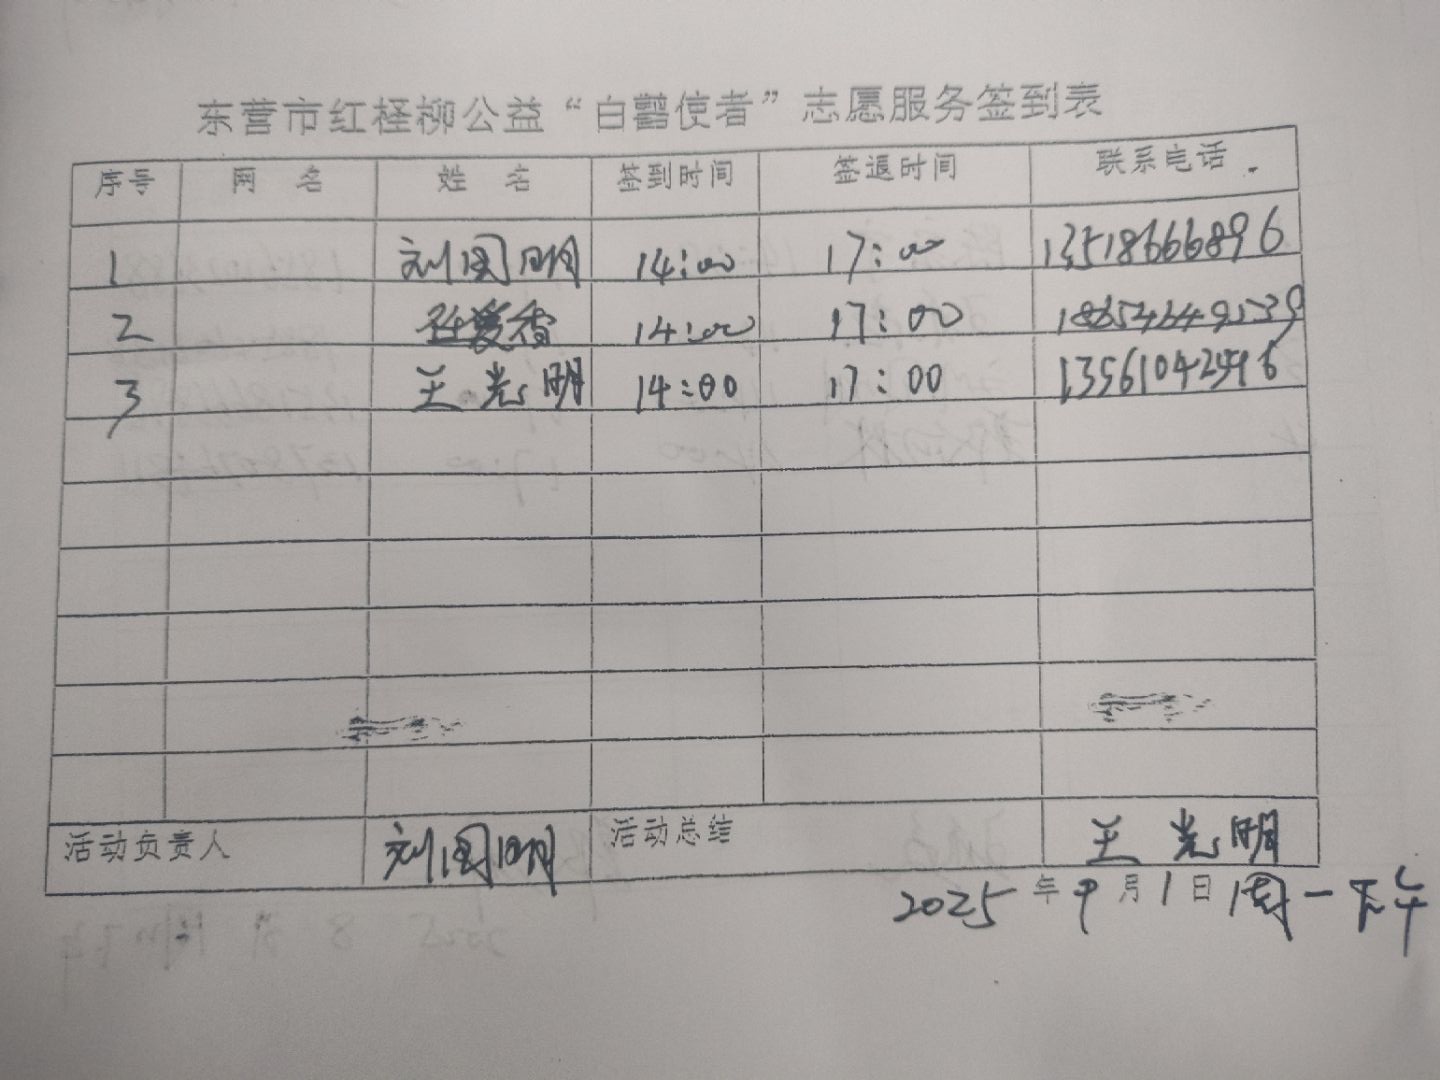 东营市红柽柳公益“白鹳使者”志愿服务签到表
序号 网 名 姓 名 签到时间 签退时间 联系电话
1 刘国明 14:00 17:00 13518666896
2 香 14:00 17:00
3 王光明 14:00 17:00 13561042596
活动负责人 刘国明 活动总结 王光明
2025年9月1日周一下午